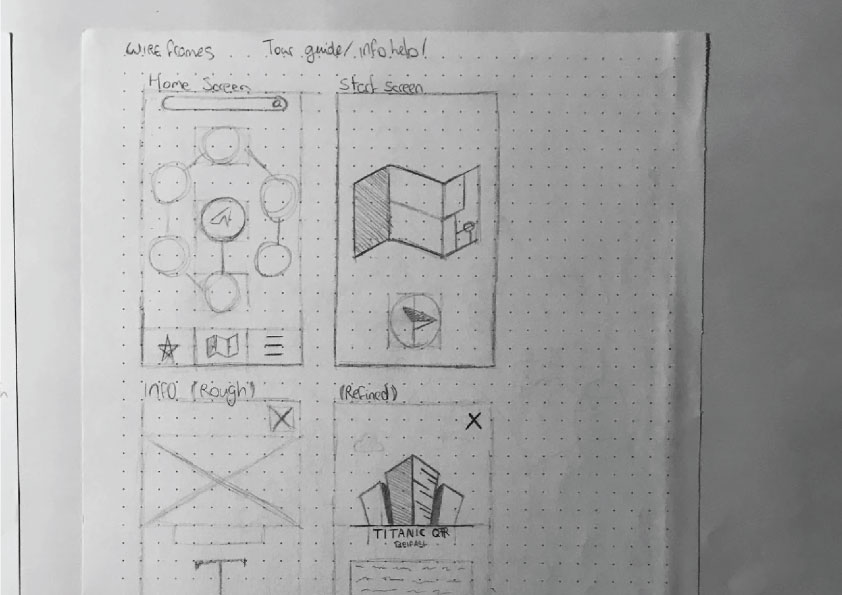 WIREframes Tour guide/info.help!
Home Screen
Start screen
INFO (Rough)
(Refined)
TITANIC QTR
BELFAST
T